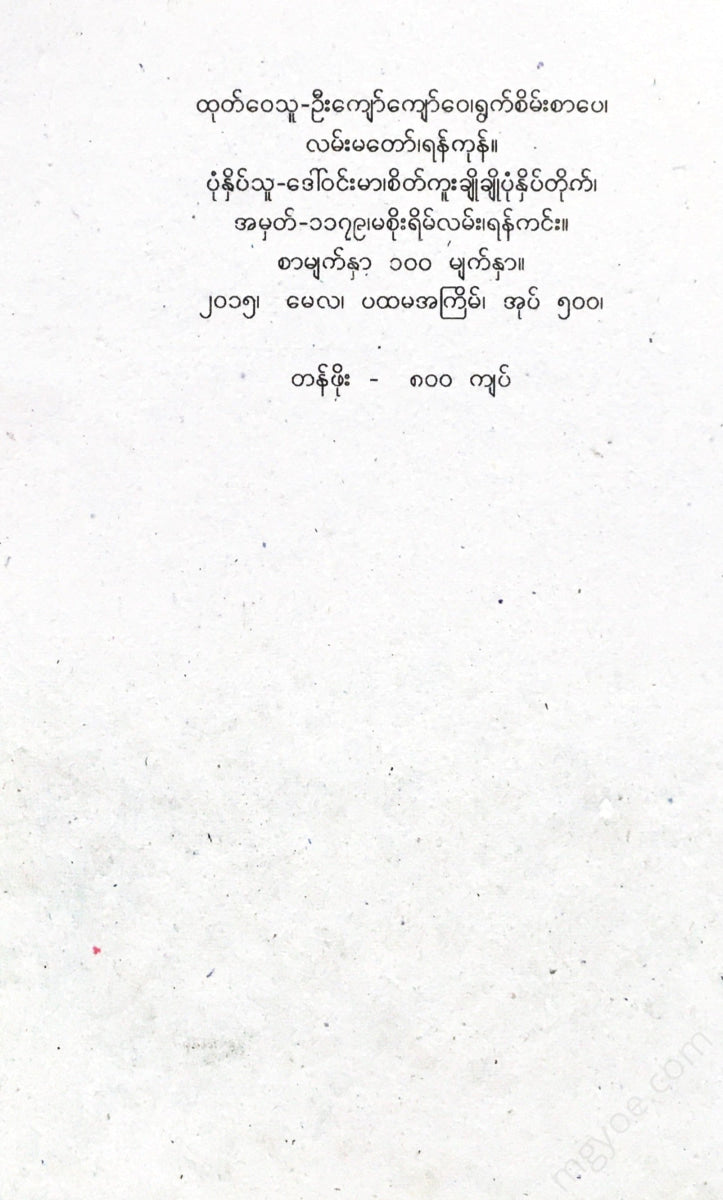 ထုတ်ဝေသူ-ဦးကျော်ကျော်ဝေ၊ရွက်စိမ်းစာပေ၊
လမ်းမတော်၊ရန်ကုန်။
ပုံနှိပ်သူ-ဒေါ်ဝင်းမာ၊စိတ်ကူးချိုချိုပုံနှိပ်တိုက်၊
အမှတ်-၁၁၇၉၊မစိုးရိမ်လမ်း၊ရန်ကင်း။
စာမျက်နှာ ၁၀၀ မျက်နှာ။
၂၀၁၅၊ မေလ၊ ပထမအကြိမ်၊ အုပ် ၅၀၀၊
တန်ဖိုး - ၈၀၀ ကျပ်
mgyoe.com